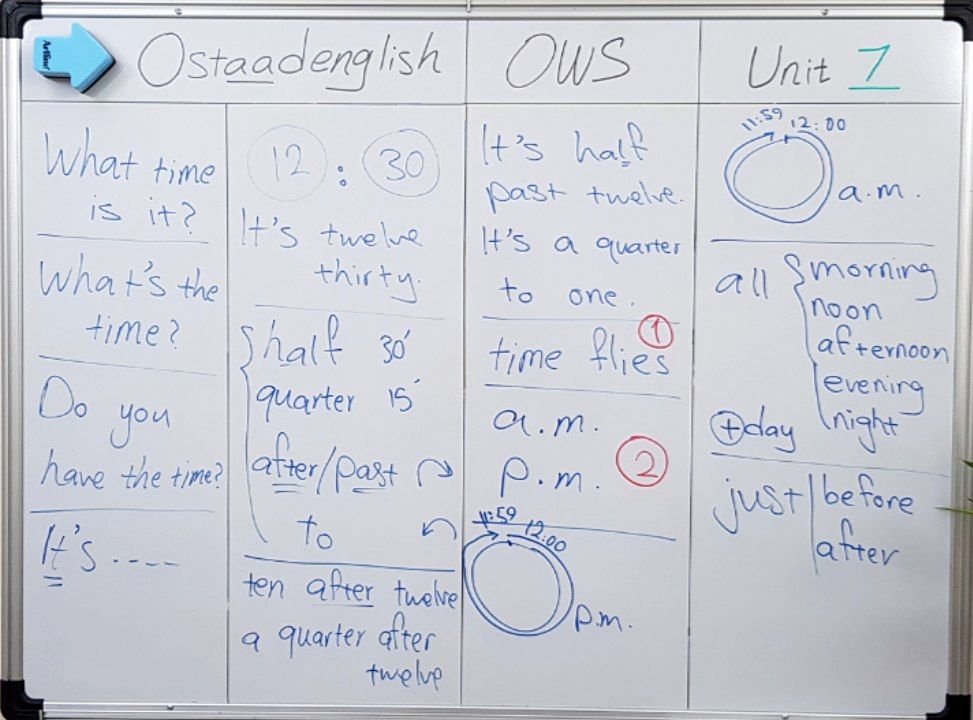 Artline
Ostaadenglish
OWS
Unit 7
What time
is it?
What's the
time?
Do you
have the time?
It's ----
12 : 30
It's twelve
thirty.
half 30'
quarter 15'
after/past
to
ten after twelve
a quarter after
twelve
It's half
past twelve.
It's a quarter
to one.
1
time flies
a.m.
p.m. 2
11:59 12:00
p.m.
11:59 12:00
a.m.
all morning
noon
afternoon
evening
night
+day
just before
after